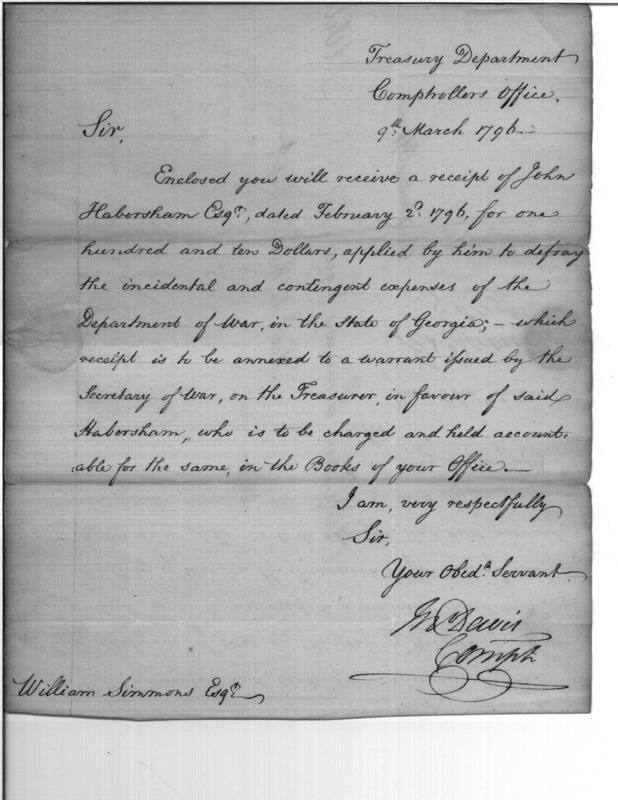 Treasury Department
Comptrollers Office,
9th March 1796.
Sir,
Enclosed you will receive a receipt of John
Habersham Esqr, dated February 2d 1796, for one
hundred and ten Dollars, applied by him to defray
the incidental and contingent expenses of the
Department of War, in the State of Georgia; — which
receipt is to be annexed to a warrant issued by the
Secretary of War, on the Treasurer, in favour of said
Habersham, who is to be charged and held account-
able for the same, in the Books of your Office. —
I am, very respectfully
Sir,
Your Obedt Servant.
Jn Davis
Compt
William Simmons Esqr